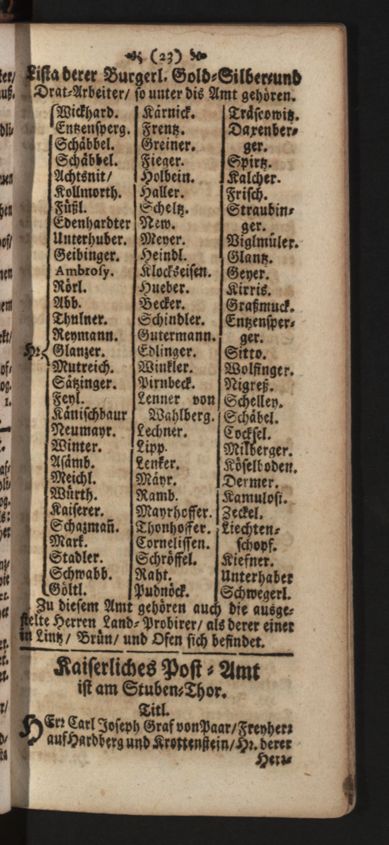 (23)
Lista derer Burgerl. Gold-Silber-und
Drat-Arbeiter/ so unter dis Amt gehören.
Wickhard.
Entzensperg.
Schäbbel.
Schäbbel.
Achtsnit/
Kollmorth.
Füßl.
Edenhardter
Unterhuber.
Geibinger.
Ambrosy.
Rörl.
Abb.
Thulner.
Reymann.
Hr. Glantzer.
Mutreich.
Sätzinger.
Feyl.
Känischbaur
Neumayr.
Winter.
Asämb.
Meichl.
Würth.
Kaiserer.
Schatzmañ.
Mark.
Stadler.
Schwabb.
Göltl.
Kärnick.
Frentz.
Greiner.
Fieger.
Holbein.
Haller.
Scheltz.
New.
Meyer.
Heindl.
Klockseisen.
Hueber.
Becker.
Schindler.
Gutermann.
Edlinger.
Winkler.
Pirnbeck.
Lenner von
Wahlberg.
Lechner.
Lipp.
Lenker.
Mäyr.
Ramb.
Mayrhoffer.
Thonhoffer.
Cornelissen.
Schröffel.
Raht.
Pudnöck.
Träscowitz.
Daxenber-
ger.
Spirtz.
Kalcher.
Frisch.
Straubin-
ger.
Viglmüler.
Glantz.
Geyer.
Kirris.
Graßmuck.
Entzensper-
ger.
Sitto.
Wolfinger.
Nigreß.
Schelley.
Schäbel.
Cocksel.
Milberger.
Köselboden.
Dermer.
Kamulosi.
Zeckel.
Liechten-
schopf.
Kiefner.
Unterhaber
Schwegerl.
Zu diesem Amt gehören auch die ausge-
stelte Herren Land-Probirer/ als derer einer
in Lintz/ Brün/ und Ofen sich befindet.
Kaiserliches Post-Amt
ist am Stuben-Thor.
Titl.
HErr Carl Joseph Graf von Paar/ Freyherr
auf Hardberg und Krottenstein/ Hr. derer
Herr-